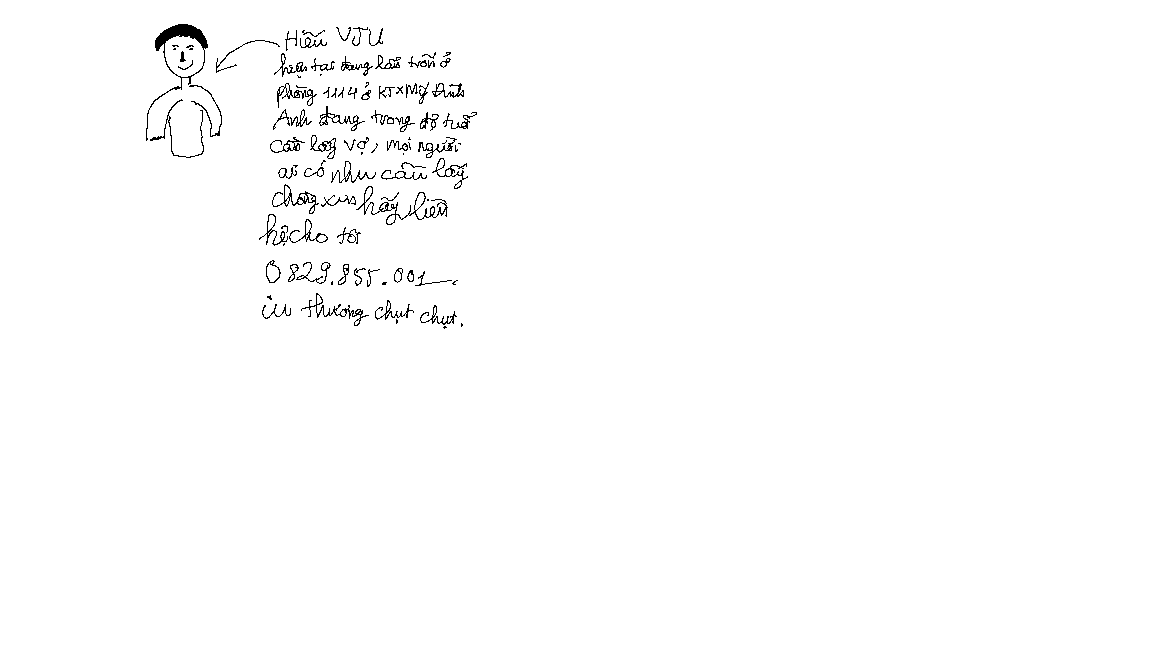 Hiếu VJU
hiện tại đang lẩn trốn ở
phòng 1114 ở KTX Mỹ Đình
Anh đang trong độ tuổi
cần lấy vợ, mọi người
ai có nhu cầu lấy
chồng xin hãy liên
hệ cho tôi
0829.855.001
iu thương chụt chụt.